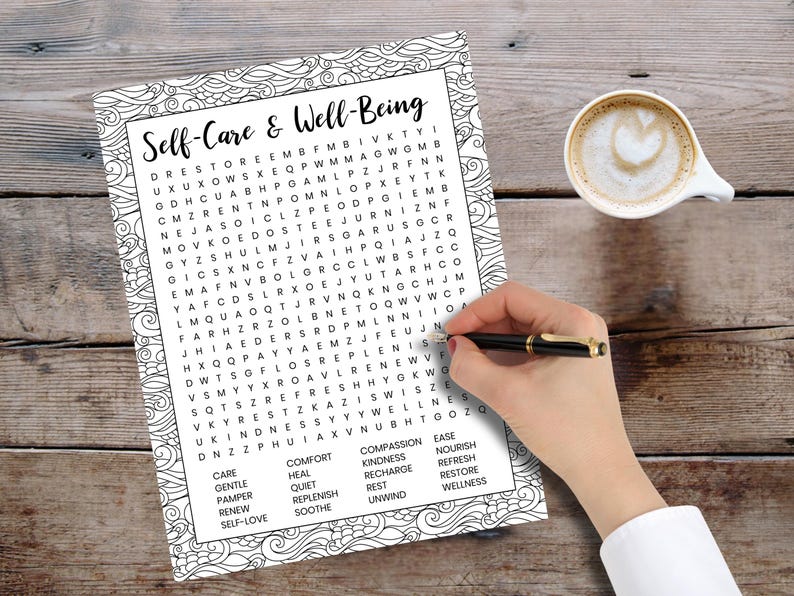 Self-Care & Well-Being
D R E S T O R E E M B F M B I V K T Y I
U X U X O W S X E Q P W M M A G W G M B
G D H C U A B H P G A M L P Z J R F N N
C M Z R E N T N P O M N L O P X E Y T K
N E J A S O I C L Z P E O D P G I E M B
M O V K O E D O S T E E J U R N I Z N F
G Y Z S H U L M J I R S G A R U S G C R
G I C S X N C F Z V A I H P Q I A J Z Q
E M A F N V B O L G R C C L W B S F C C
Y A F C D S L R X O E J Y U T A R H C O
L M Q U A O Q T J R V N Q K N G C H J M
F A R H Z R Z O L B N E T O Q W V W C P
J H I A E D E R S R D P M L N N I O A
H X Q Q P A Y Y A E M Z J F E U J N
D W T S G F L O S R E P L E N I S
V S M Y Y X R O A V L R E N E W V F
S Q T S Z R E F R E S H H Y G K W G
V K Y R E S T Z K A Z I S W I S Z E
U K I N D N E S S Y Y Y W E L L N E S
D N Z Z P H U I A X V N U B H T G O Z Q
CARE COMFORT COMPASSION EASE
GENTLE HEAL KINDNESS NOURISH
PAMPER QUIET RECHARGE REFRESH
RENEW REPLENISH REST RESTORE
SELF-LOVE SOOTHE UNWIND WELLNESS